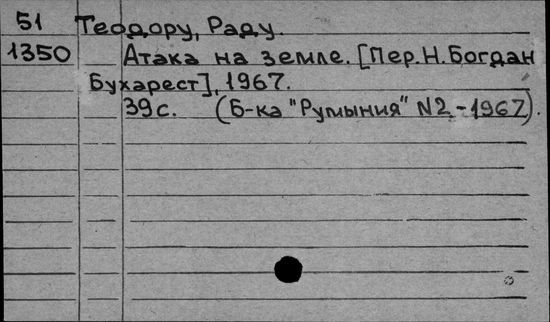 51 Теодору, Раду.
1350 Атака на земле. [Пер. Н. Богдан
Бухарест], 1967.
39 с. (Б-ка "Румыния" N2 - 1967).